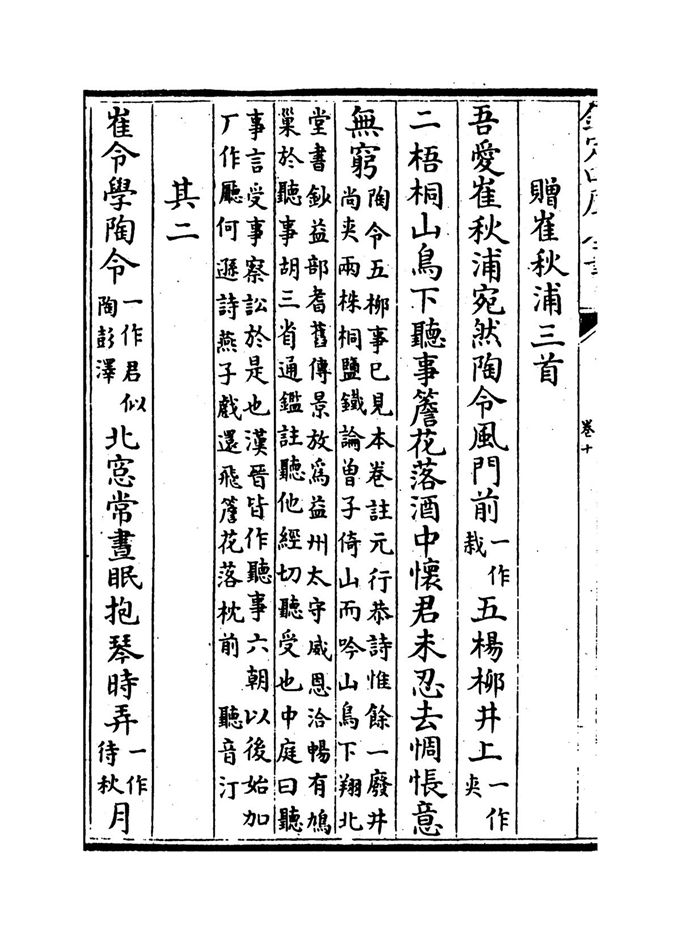 欽定四庫全書
卷十
贈崔秋浦三首
吾愛崔秋浦宛然陶令風門前一作栽五楊柳井上一作夾
二梧桐山鳥下聽事簷花落酒中懷君未忍去惆悵意
無窮陶令五柳事已見本卷註元行恭詩惟餘一廢井
尚夾兩株桐鹽鐵論曾子倚山而吟山鳥下翔北
堂書鈔益部耆舊傳景放為益州太守威恩洽暢有鳩
巢於聽事胡三省通鑑註聽他經切聽受也中庭曰聽
事言受事察訟於是也漢晉皆作聽事六朝以後始加
厂作廳何遜詩燕子戲還飛簷花落枕前　聽音汀
其二
崔令學陶令一作君似陶彭澤北窓常晝眠抱琴時弄一作待秋月